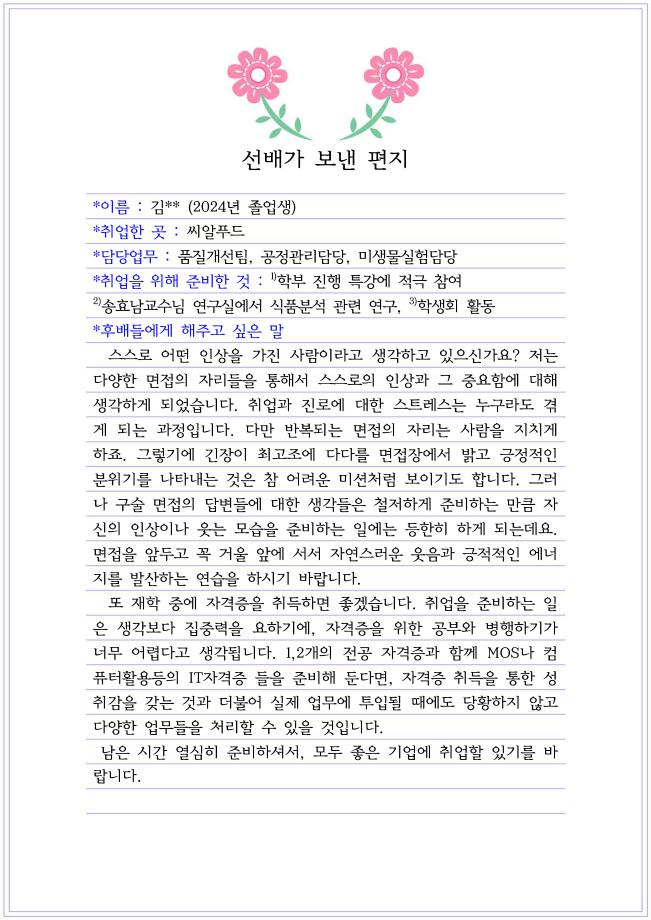 선배가 보낸 편지
*이름 : 김** (2024년 졸업생)
*취업한 곳 : 씨알푸드
*담당업무 : 품질개선팀, 공정관리담당, 미생물실험담당
*취업을 위해 준비한 것 : 1)학부 진행 특강에 적극 참여
2)송효남교수님 연구실에서 식품분석 관련 연구, 3)학생회 활동
*후배들에게 해주고 싶은 말
스스로 어떤 인상을 가진 사람이라고 생각하고 있으신가요? 저는
다양한 면접의 자리들을 통해서 스스로의 인상과 그 중요함에 대해
생각하게 되었습니다. 취업과 진로에 대한 스트레스는 누구라도 겪
게 되는 과정입니다. 다만 반복되는 면접의 자리는 사람을 지치게
하죠. 그렇기에 긴장이 최고조에 다다를 면접장에서 밝고 긍정적인
분위기를 나타내는 것은 참 어려운 미션처럼 보이기도 합니다. 그러
나 구술 면접의 답변들에 대한 생각들은 철저하게 준비하는 만큼 자
신의 인상이나 웃는 모습을 준비하는 일에는 등한히 하게 되는데요.
면접을 앞두고 꼭 거울 앞에 서서 자연스러운 웃음과 긍적적인 에너
지를 발산하는 연습을 하시기 바랍니다.
또 재학 중에 자격증을 취득하면 좋겠습니다. 취업을 준비하는 일
은 생각보다 집중력을 요하기에, 자격증을 위한 공부와 병행하기가
너무 어렵다고 생각됩니다. 1,2개의 전공 자격증과 함께 MOS나 컴
퓨터활용등의 IT자격증 들을 준비해 둔다면, 자격증 취득을 통한 성
취감을 갖는 것과 더불어 실제 업무에 투입될 때에도 당황하지 않고
다양한 업무들을 처리할 수 있을 것입니다.
남은 시간 열심히 준비하셔서, 모두 좋은 기업에 취업할 있기를 바
랍니다.